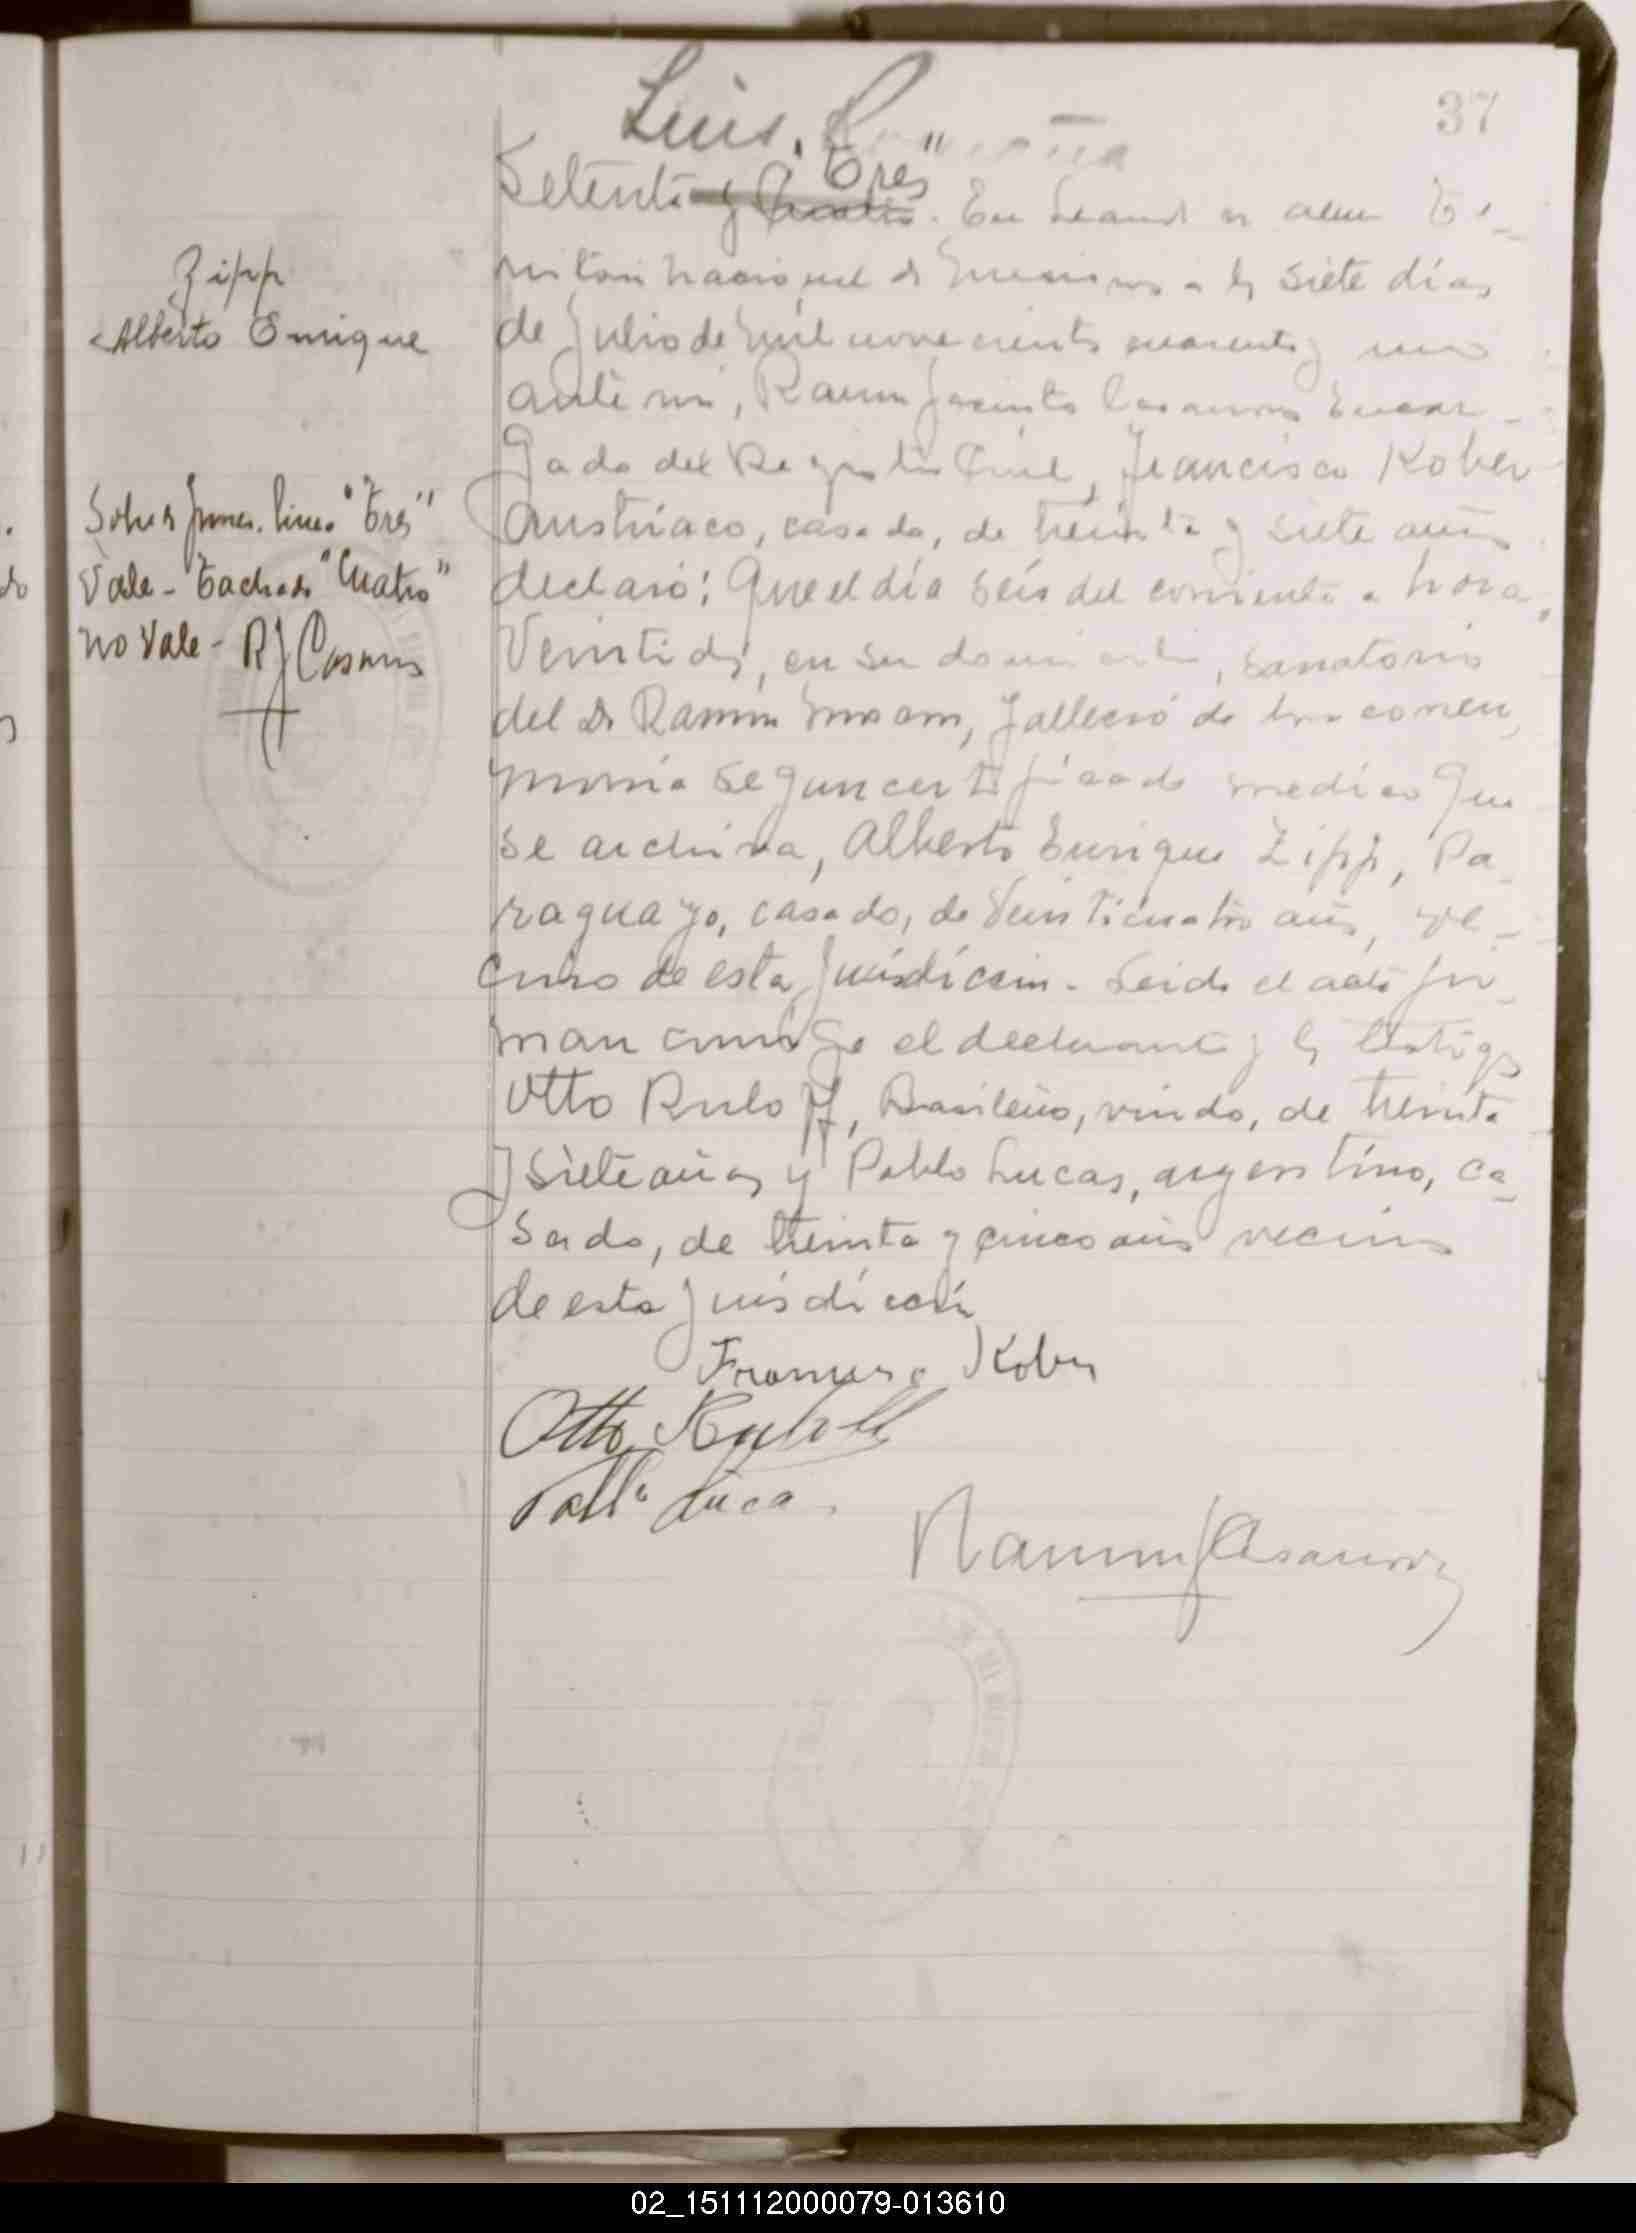 37
Luis
"Tres"
Setenta y Cuatro. En Leandro N Alem Te-
rritorio Nacional de Misiones a los siete días
de Julio de mil novecientos cuarenta y uno
ante mi, Ramon Jacinto Casanova Encar-
gado del Registro Civil, Francisco Kober
Austriaco, casado, de treinta y siete años
declaró: Que el día seis del corriente a hora
Veintidos, en su domicilio, sanatorio
del Dr Ramón, falleció de
según certificado medico que
se archiva, Alberto Enrique Zipp, Pa-
raguayo, casado, de Veinticuatro años, ve-
cino de esta Jurisdiccion. Leido el acta fir-
man conmigo el declarante y los testigos
Otto Ruloff, Brasileño, viudo, de treinta
y siete años y Pablo Lucas, argentino, ca-
sado, de treinta y cinco años vecinos
de esta jurisdiccion
Zipp
Alberto Enrique
Sobre primer. linea "Tres"
Vale - Tachado "Cuatro"
no Vale - R J Casanova
Francisco Kober
Otto Ruloff
Pablo Luca
Ramon J Casanova
02_151112000079-013610